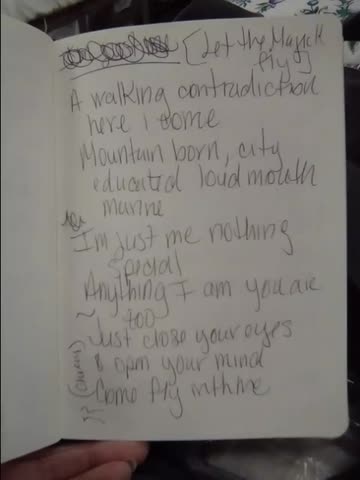 [Let the Magick
fly]
A walking contradiction
here I come
Mountain born, city
educated loud mouth
marine
Im just me nothing
special
Anything I am you are
too
~ Just close your eyes
& open your mind
Come fly with me